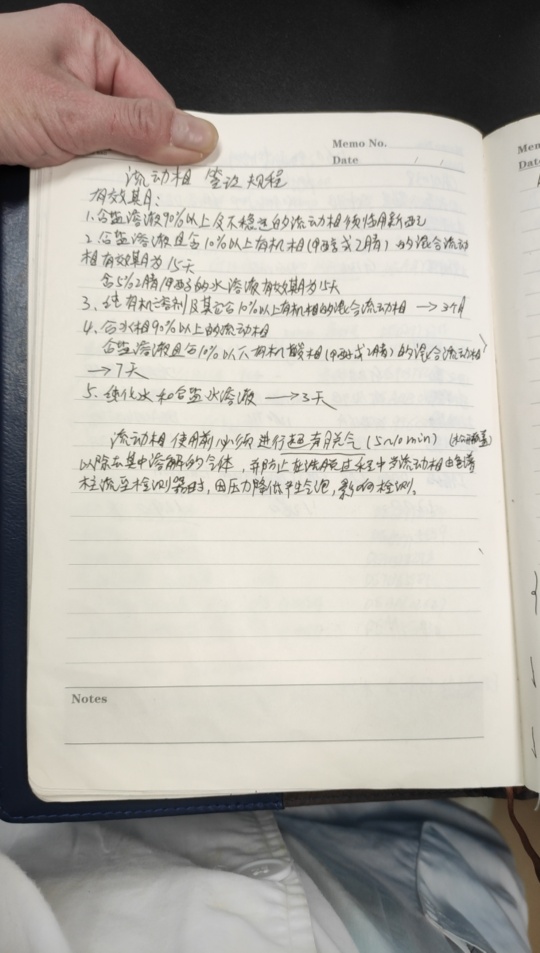 Memo No.
Date / /
流动相 管理规程
有效期:
1.含盐溶液90%以上及不稳定的流动相须临用新配
2.含盐溶液且含10%以上有机相(甲醇或乙腈)的混合流动
相有效期为15天
含5%乙腈/甲醇的水溶液有效期为15天
3.纯有机溶剂及其它含10%以上有机相的混合流动相 →3个月
4.含水相90%以上的流动相
含盐溶液且含10%以下有机相(甲醇或乙腈)的混合流动相
→7天
5.纯化水和含盐水溶液 →3天
流动相使用前必须进行超声脱气(5~10min)
以除去其中溶解的气体,并防止在洗脱过程中当流动相由色谱
柱流至检测器时,因压力降低产生气泡,影响检测。
Notes
Mem
Dat